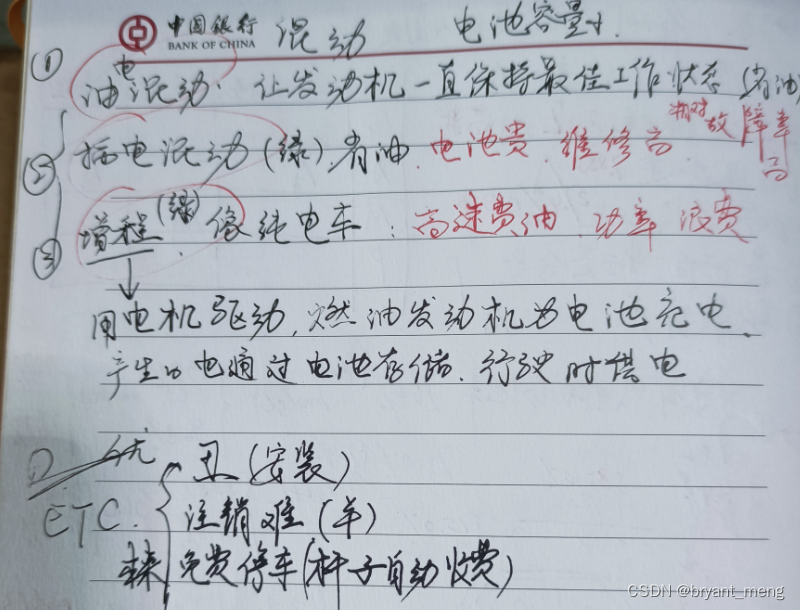 中国银行 混动 电池容量
BANK OF CHINA
① 油电混动. 让发动机一直保持最佳工作状态(省油)
② 插电混动(绿).省油.电池贵.维修高 相对故障率高
③ 增程(绿) 像纯电车:高速费油.功率浪费
用电机驱动,燃油发动机为电池充电.
产生的电通过电池存储.行驶时供电
① 优
ETC. 丑(安装)
注销难(车)
免费停车(杆子自动收费)
CSDN @bryant_meng